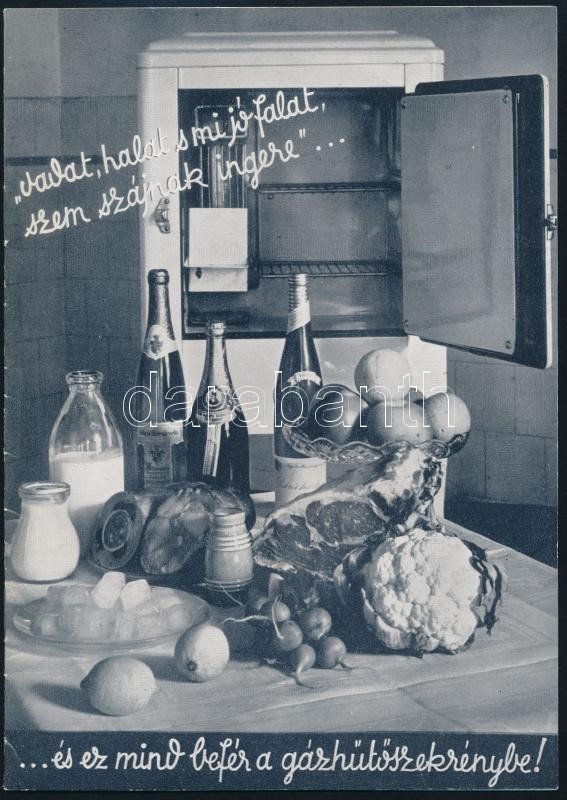 „vadat, halat s mi jó falat,
szem szájnak ingere"...
darabanth
...és ez mind befér a gázhűtőszekrénybe!